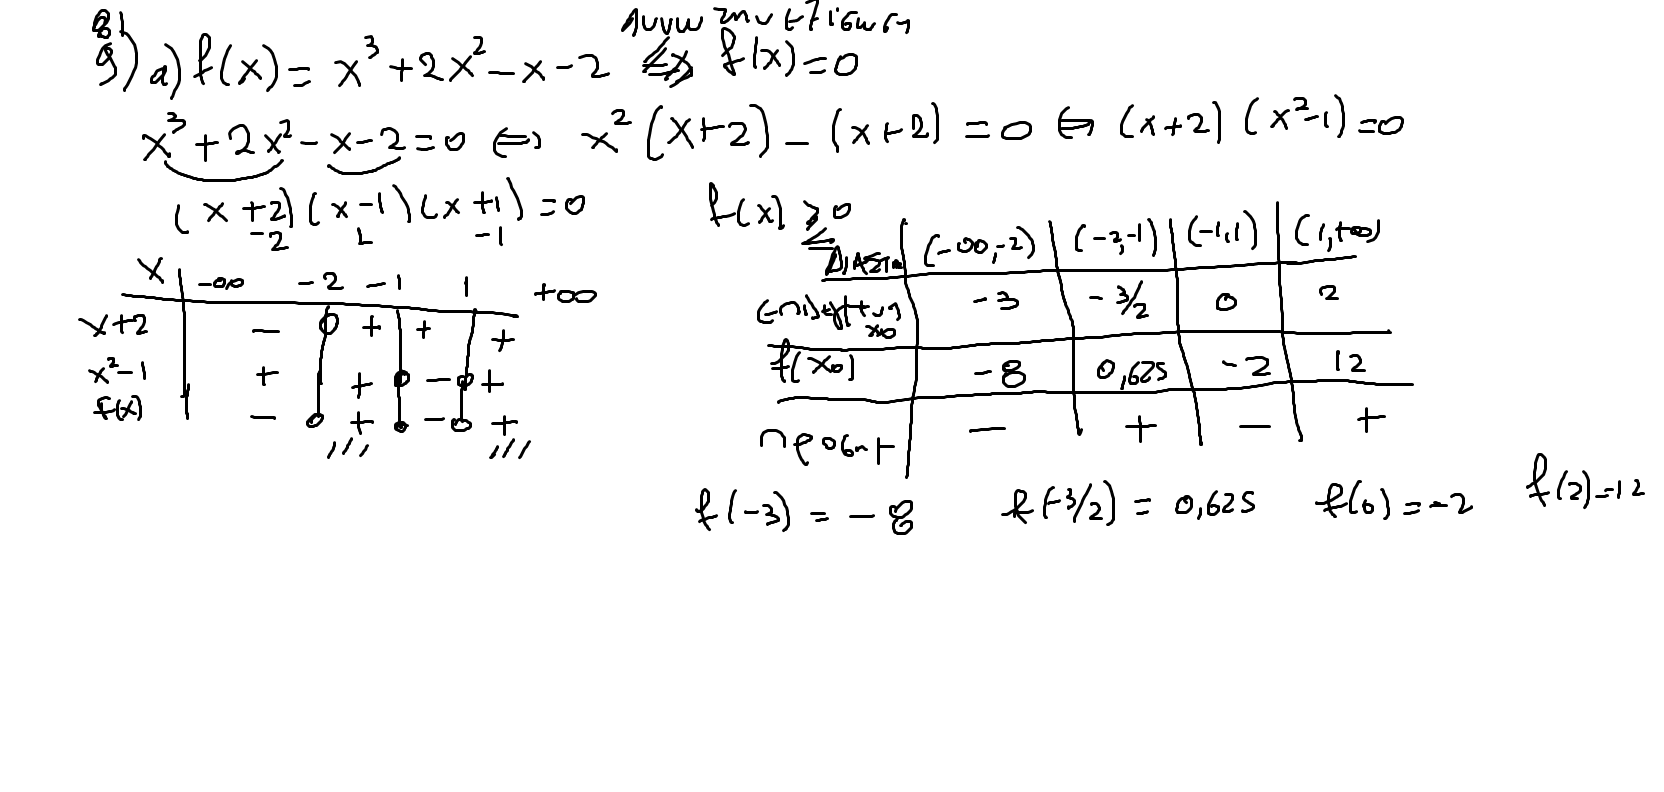 81
9) α) f(x) = x³ + 2x² - x - 2 λύνω την εξίσωση f(x) = 0
x³ + 2x² - x - 2 = 0 ⇔ x² (x+2) - (x+2) = 0 ⇔ (x+2) (x²-1) = 0
(x+2) (x-1) (x+1) = 0
-2 1 -1
x -∞ -2 -1 1 +∞
x+2 - 0 + + +
x²-1 + + 0 - 0 +
f(x) - 0 + 0 - 0 +
f(x) ≥ 0
≤
Διάστημ (-∞,-2) (-2,-1) (-1,1) (1,+∞)
x₀ -3 -3/2 0 2
f(x₀) -8 0,625 -2 12
πρόσημ - + - +
f(-3) = -8 f(-3/2) = 0,625 f(0) = -2 f(2) = 12